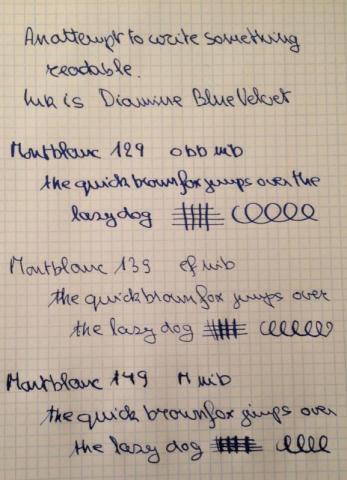 An attempt to write something
readable.
Ink is Diamine Blue Velvet
Montblanc 129 obb nib
the quick brown fox jumps over the
lazy dog
Montblanc 139 ef nib
the quick brown fox jumps over
the lazy dog
Montblanc 149 M nib
the quick brown fox jumps over
the lazy dog